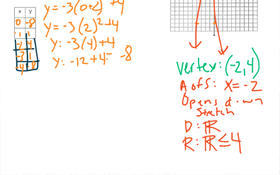 x y
0 -8
y: -3(0+2)² +4
y: -3(2)²+4
y: -3(4)+4
y: -12+4= -8
Vertex: (-2,4)
A ofs: X= -2
Opens down
Stretch
D: ℝ
R: ℝ≤4